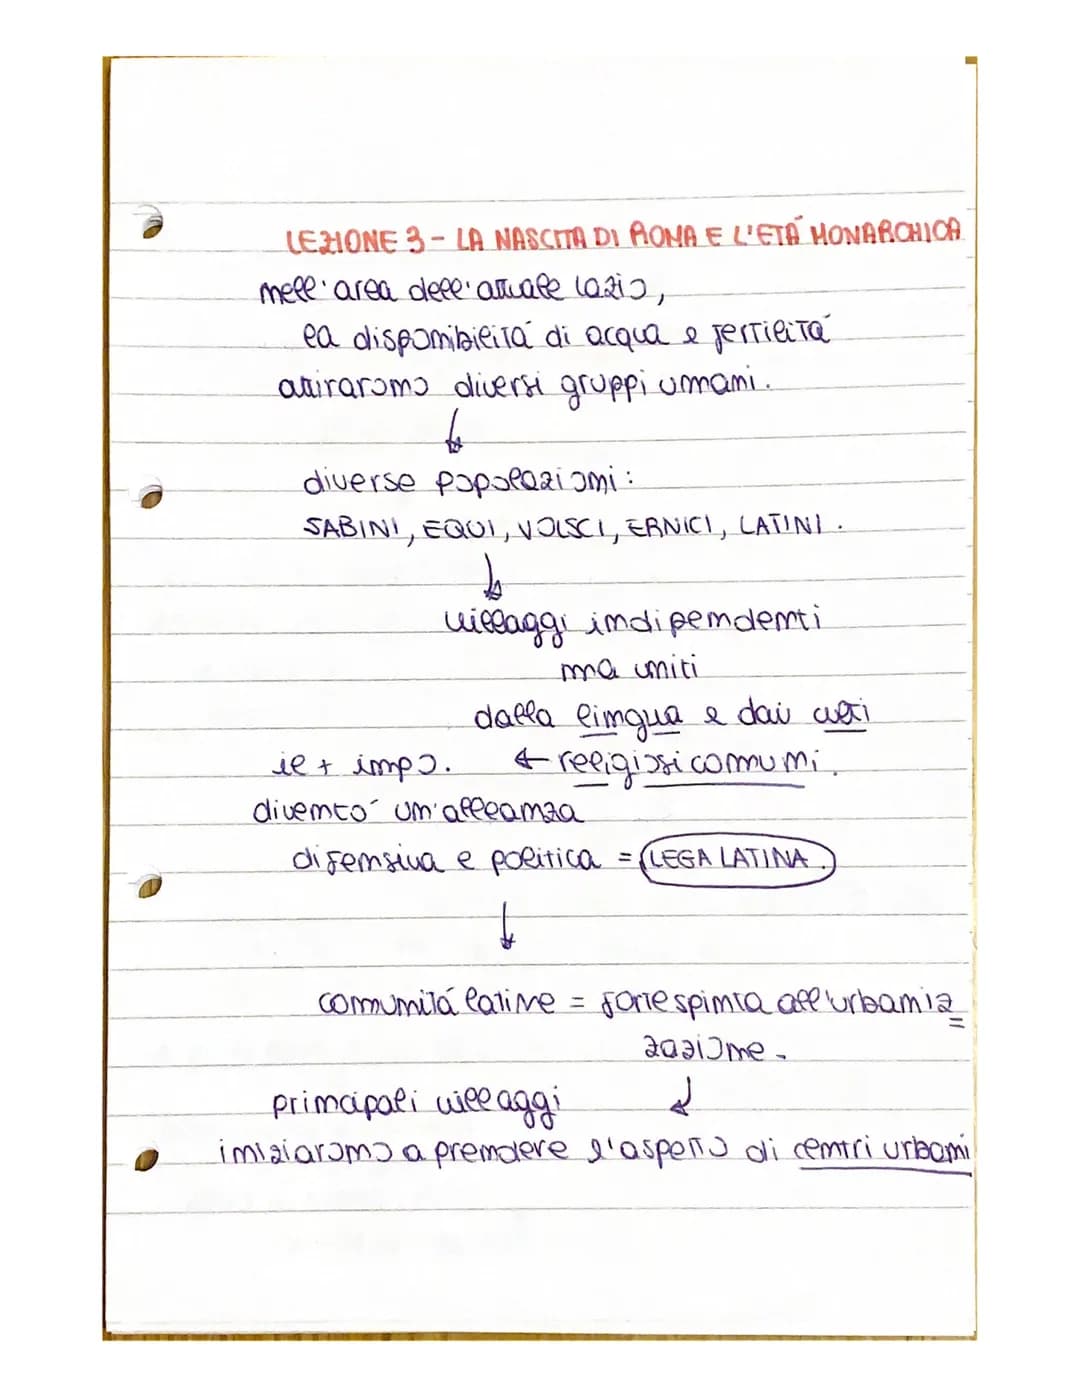 LEZIONE 3 - LA NASCITA DI ROMA E L'ETÁ MONARCHICA
nell'area dell'attuale Lazio,
la disponibilitá di acqua e fertilitá
attirarono diversi gruppi umani.
↓
diverse popolazioni:
SABINI, EQUI, VOLSCI, ERNICI, LATINI.
↓
villaggi indipendenti
ma uniti
dalla lingua e dai culti
il + impo. ← religiosi comuni.
diventó un'alleanza
difensiva e politica = LEGA LATINA.
↓
comunitá latine = forte spinta all'urbaniz=
zazione.
principali villaggi ↓
iniziarono a prendere l'aspetto di centri urbani